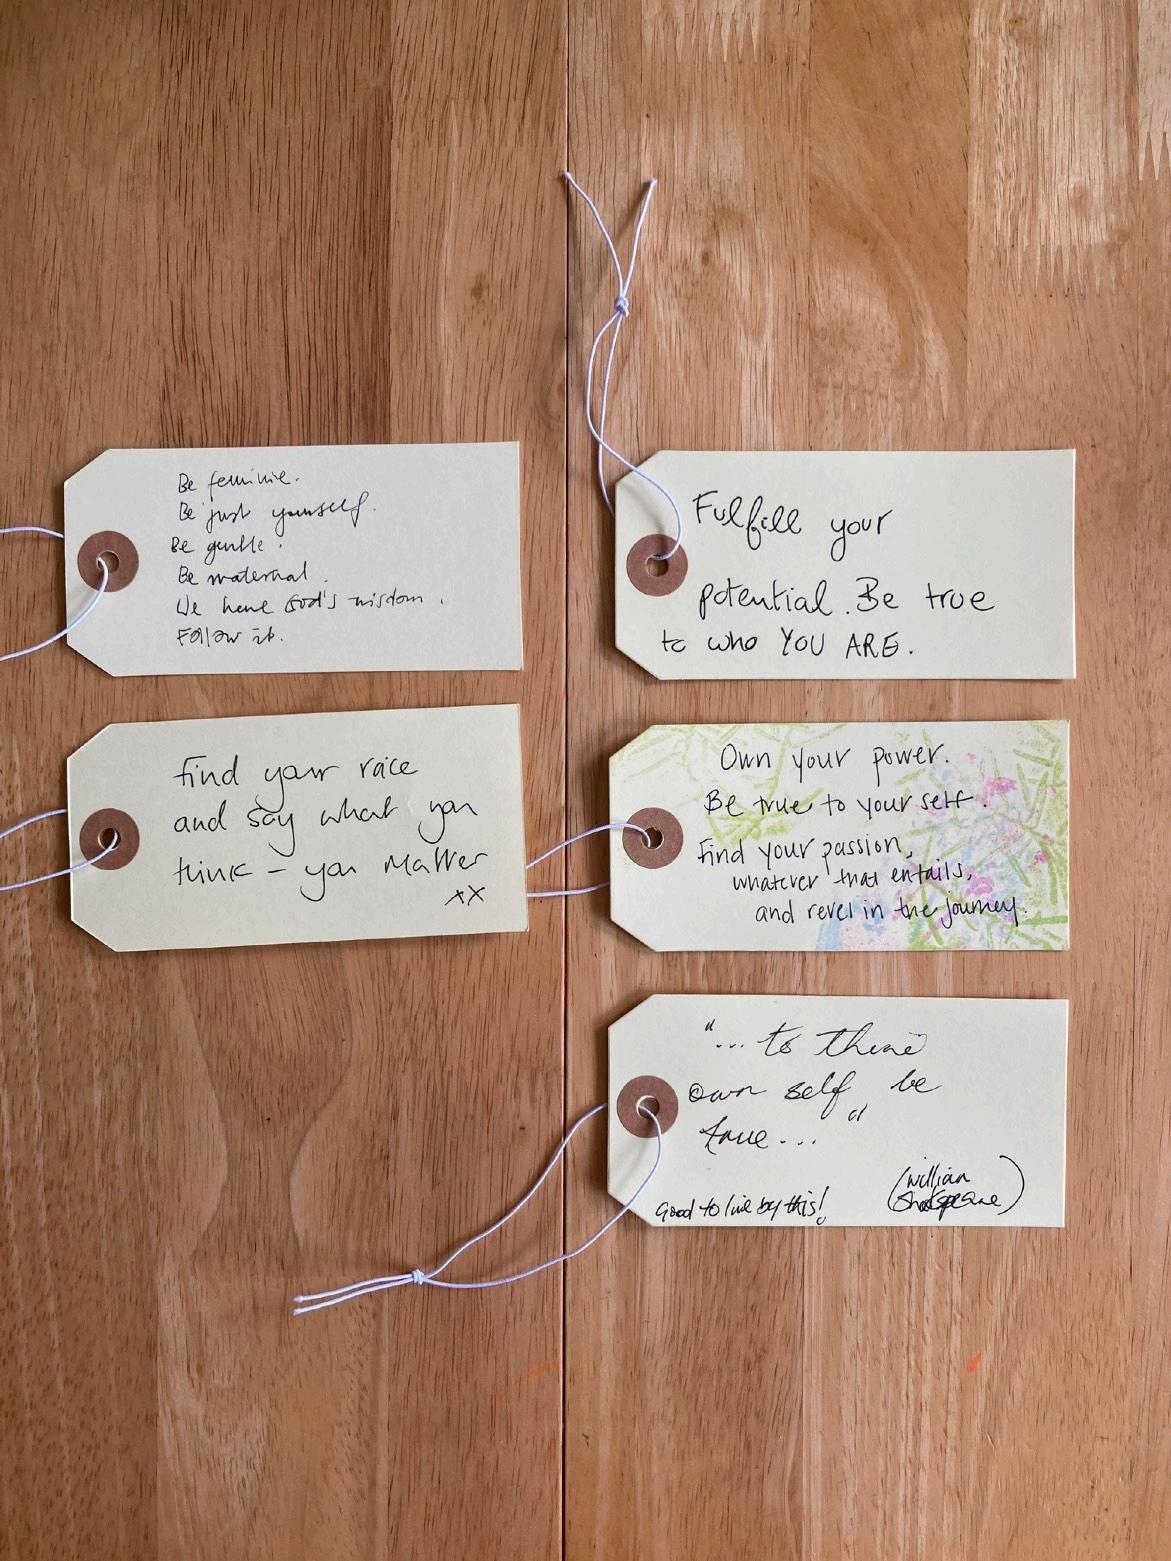 Be feminie.
Be just yourself.
Be gentle.
Be maternal.
We have God's wisdom.
Follow it.
Fulfill your
potential. Be true
to who YOU ARE.
Find your voice
and say what you
think - you matter
xx
Own your power.
Be true to your self.
Find your passion,
whatever that entails,
and revel in the journey.
"... to thine
own self be
true... "
(William
Shakespeare)
Good to live by this!